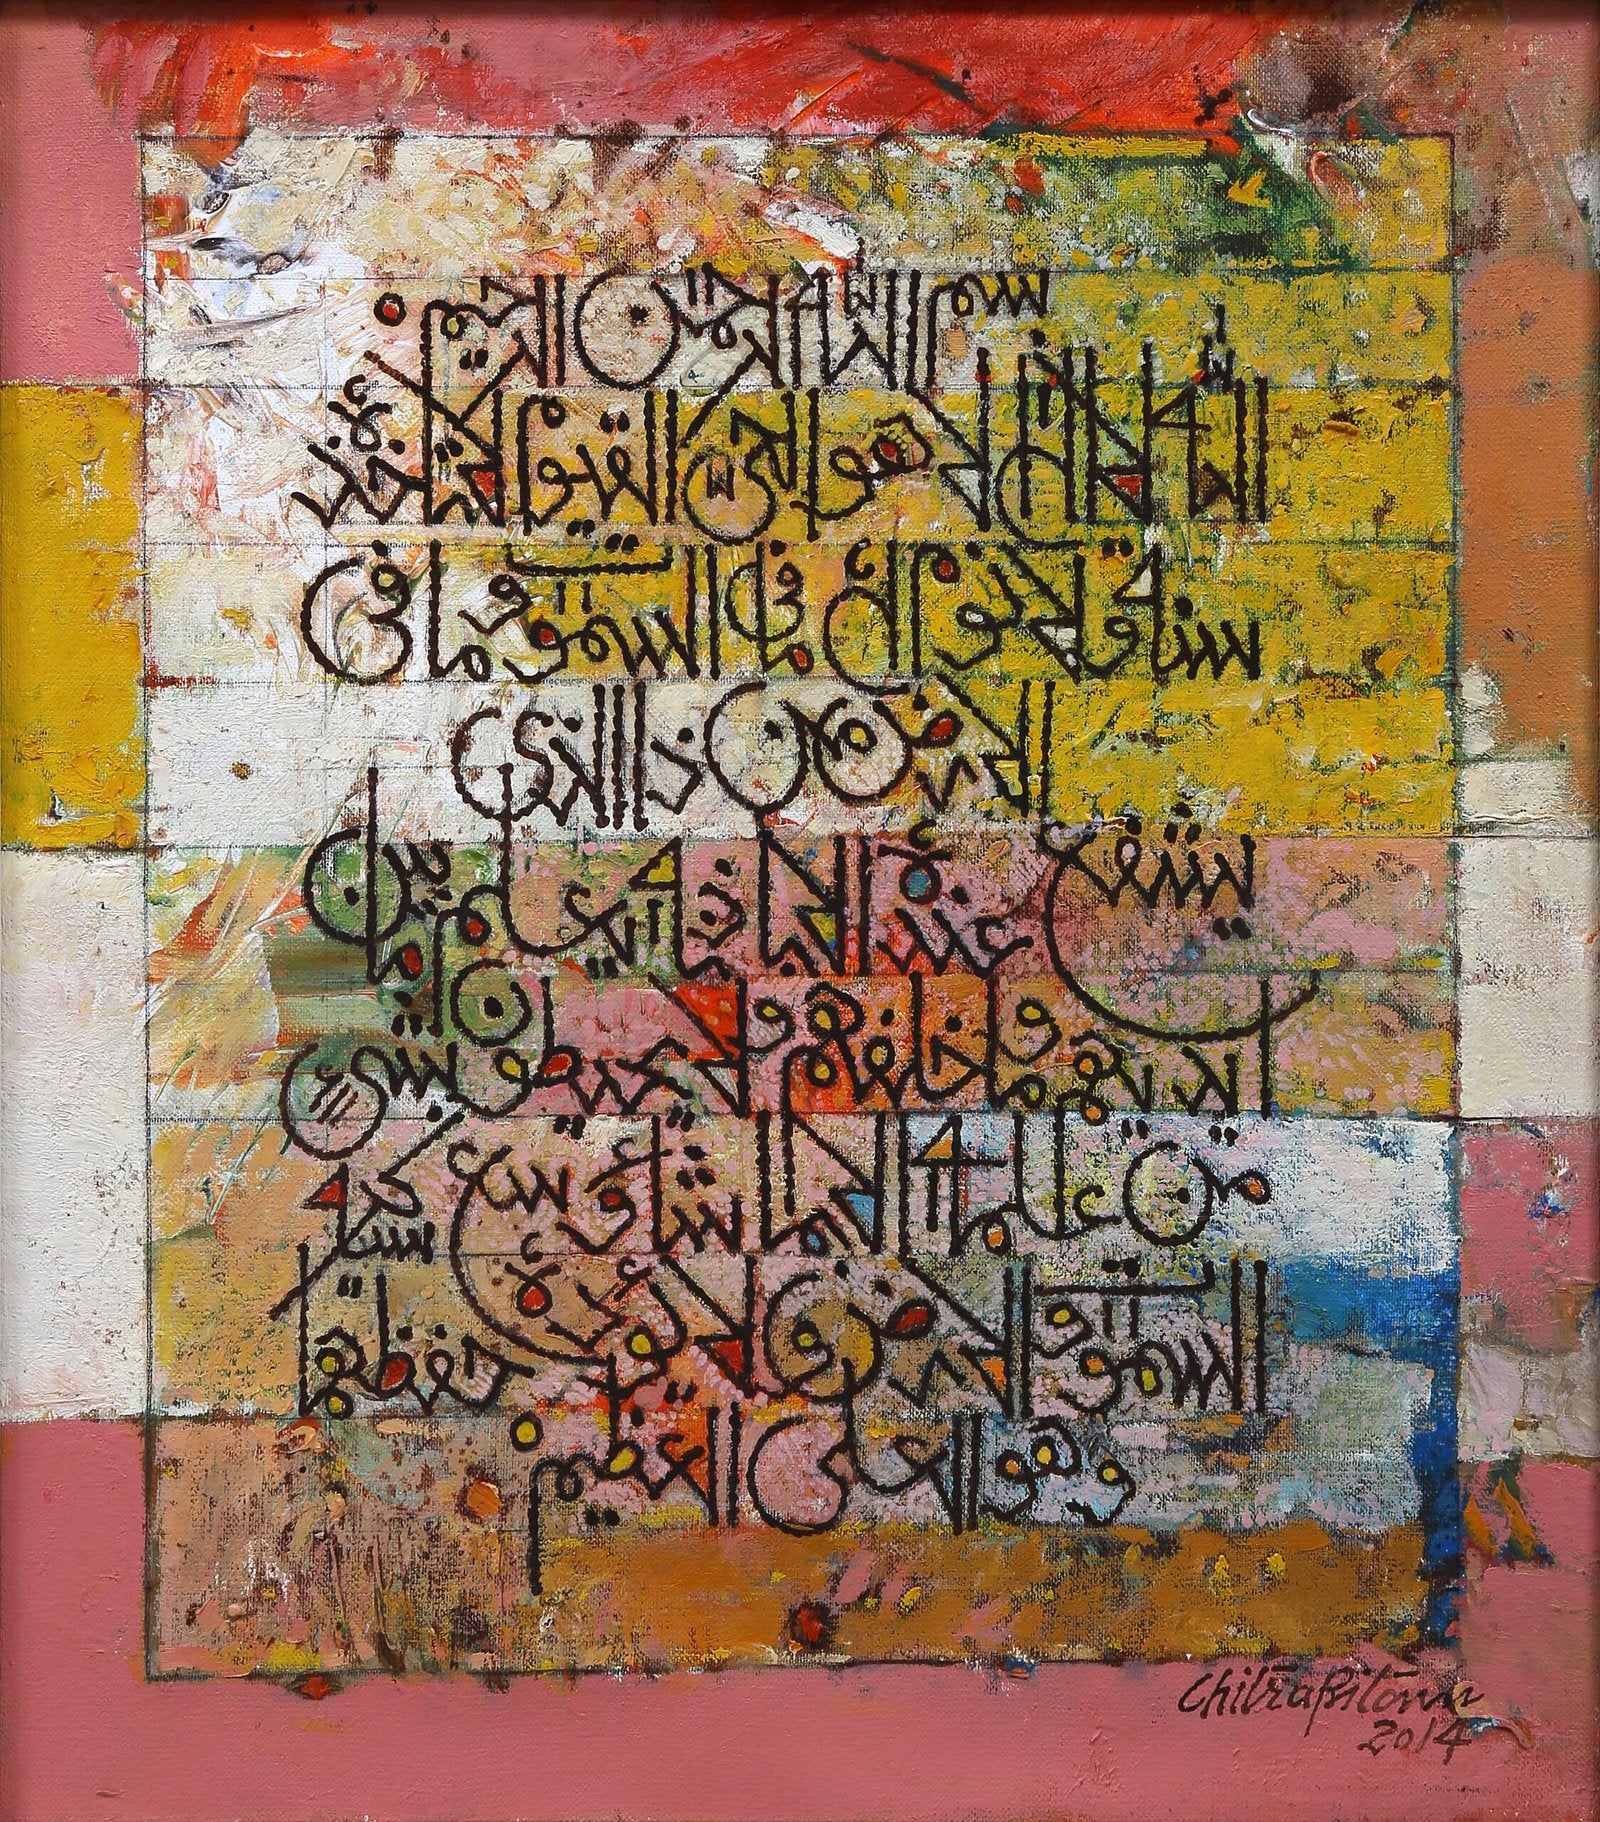 بسم الله الرحمن الرحيم
الله لا اله الا هو الحي القيوم لا تأخذه
سنة ولا نوم له ما في السموات وما في
الارض من ذا الذي
يشفع عنده الا باذنه يعلم ما بين
ايديهم وما خلفهم ولا يحيطون بشيء
من علمه الا بما شاء وسع كرسيه
السموات والارض ولا يؤده حفظهما
وهو العلي العظيم
2014